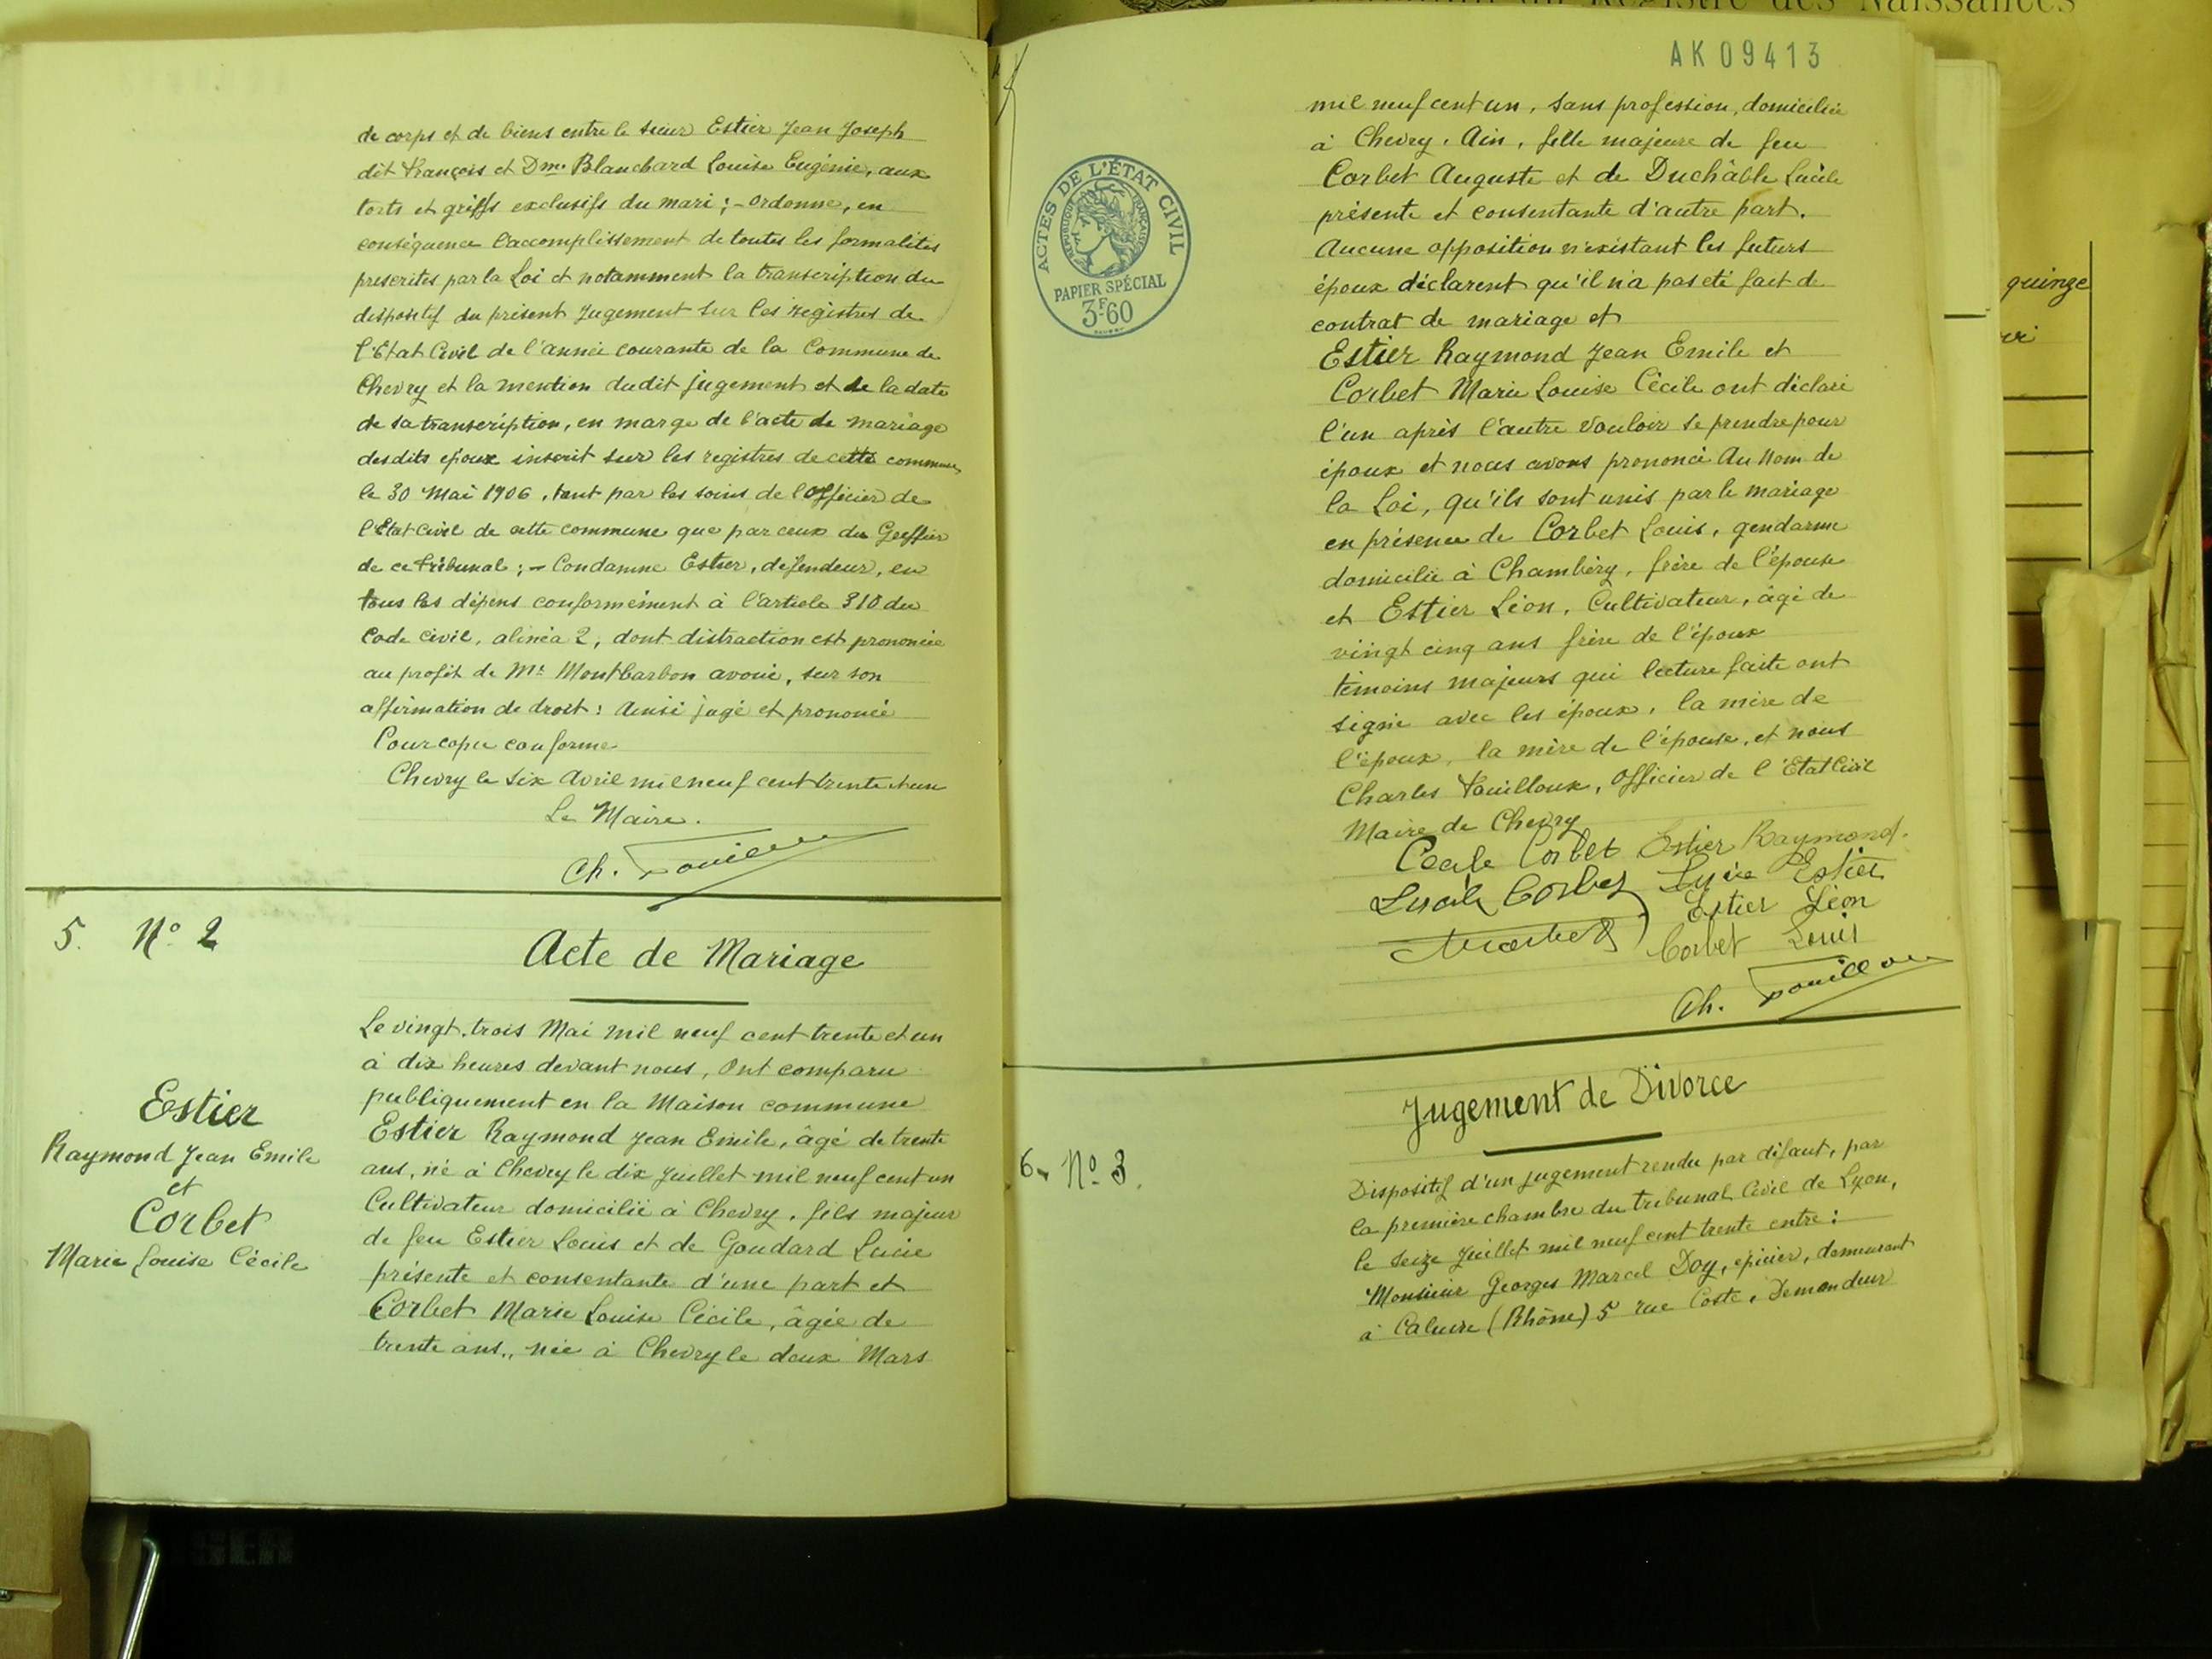 de corps et de biens entre le sieur Estier Jean Joseph
dit François et Dme Blanchard Louise Eugénie, aux
torts et griefs exclusifs du mari ; - Ordonne, en
conséquence l'accomplissement de toutes les formalités
prescrites par la Loi et notamment la transcription du
dispositif du présent Jugement sur les registres de
l'Etat Civil de l'année courante de la Commune de
Chevry et la mention dudit jugement et de la date
de sa transcription, en marge de l'acte de mariage
desdits époux inscrit sur les registres de cette commune,
le 30 Mai 1906, tant par les soins de l'Officier de
l'Etat Civil de cette commune que par ceux du Greffier
de ce Tribunal ; - Condamne Estier, défendeur, en
tous les dépens conformément à l'article 310 du
Code Civil, alinéa 2, dont distraction est prononcée
au profit de Me Montbarbon avoué, sur son
affirmation de droit : Ainsi jugé et prononcé
Pour copie conforme
Chevry le six Avril mil neuf cent trente et un
Le Maire.
Ch. Touilloux
5. No 2
Acte de Mariage
Estier
Raymond Jean Emile
et
Corbet
Marie Louise Cécile
Le vingt-trois Mai mil neuf cent trente et un
à dix heures devant nous, Ont comparu
publiquement en la Maison commune
Estier Raymond Jean Emile, âgé de trente
ans, né à Chevry le dix Juillet mil neuf cent un
Cultivateur domicilié à Chevry, fils majeur
de feu Estier Louis et de Goudard Lucie
présente et consentante d'une part et
Corbet Marie Louise Cécile, âgée de
trente ans., née à Chevry le deux Mars
AK 09413
ACTES DE L'ÉTAT CIVIL
RÉPUBLIQUE FRANÇAISE
PAPIER SPÉCIAL
3F60
mil neuf cent un, sans profession, domiciliée
à Chevry, Ain, fille majeure de feu
Corbet Auguste et de Duchâble Lucile
présente et consentante d'autre part.
Aucune opposition n'existant les futurs
époux déclarent qu'il n'a pas été fait de
contrat de mariage et
Estier Raymond Jean Emile et
Corbet Marie Louise Cécile ont déclaré
l'un après l'autre vouloir se prendre pour
époux et nous avons prononcé Au Nom de
la Loi, qu'ils sont unis par le mariage
en présence de Corbet Louis, gendarme
domicilié à Chambéry, frère de l'épouse
et Estier Léon, Cultivateur, âgé de
vingt cinq ans frère de l'époux
témoins majeurs qui lecture faite ont
signé avec les époux, la mère de
l'époux, la mère de l'épouse, et nous
Charles Touilloux, Officier de l'Etat Civil
Maire de Chevry
Cécile Corbet Estier Raymond.
Lucile Corbet Lucie Estier
Estier Léon
Corbet Louis
Ch. Touilloux
6. No 3.
Jugement de Divorce
Dispositif d'un jugement rendu par défaut, par
la première chambre du tribunal Civil de Lyon,
le seize Juillet mil neuf cent trente entre :
Monsieur Georges Marcel Doy, épicier, demeurant
à Caluire (Rhône) 5 rue Coste, Demandeur
Registre des Naissances
quinze